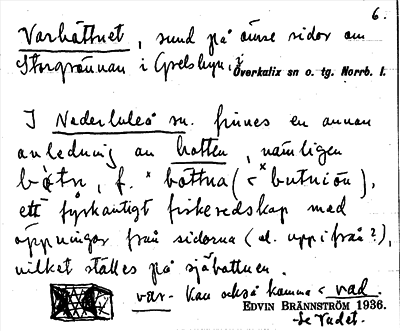 6.
Varhåttnet, sund på ömse sidor om
Storgrönnan i Grelsbyn,
Överkalix sn o. tg. Norrb. l.
I Nederluleå sn. finnes en annan
avledning av botten, nämligen
f. × bottna (< × butniōn),
ett fyrkantigt fiskeredskap med
öppningar från sidorna (el. uppifrån?),
vilket ställes på sjöbottnen.
var- kan också komma < vad.
EDVIN BRÄNNSTRÖM 1936.
Se Vadet.